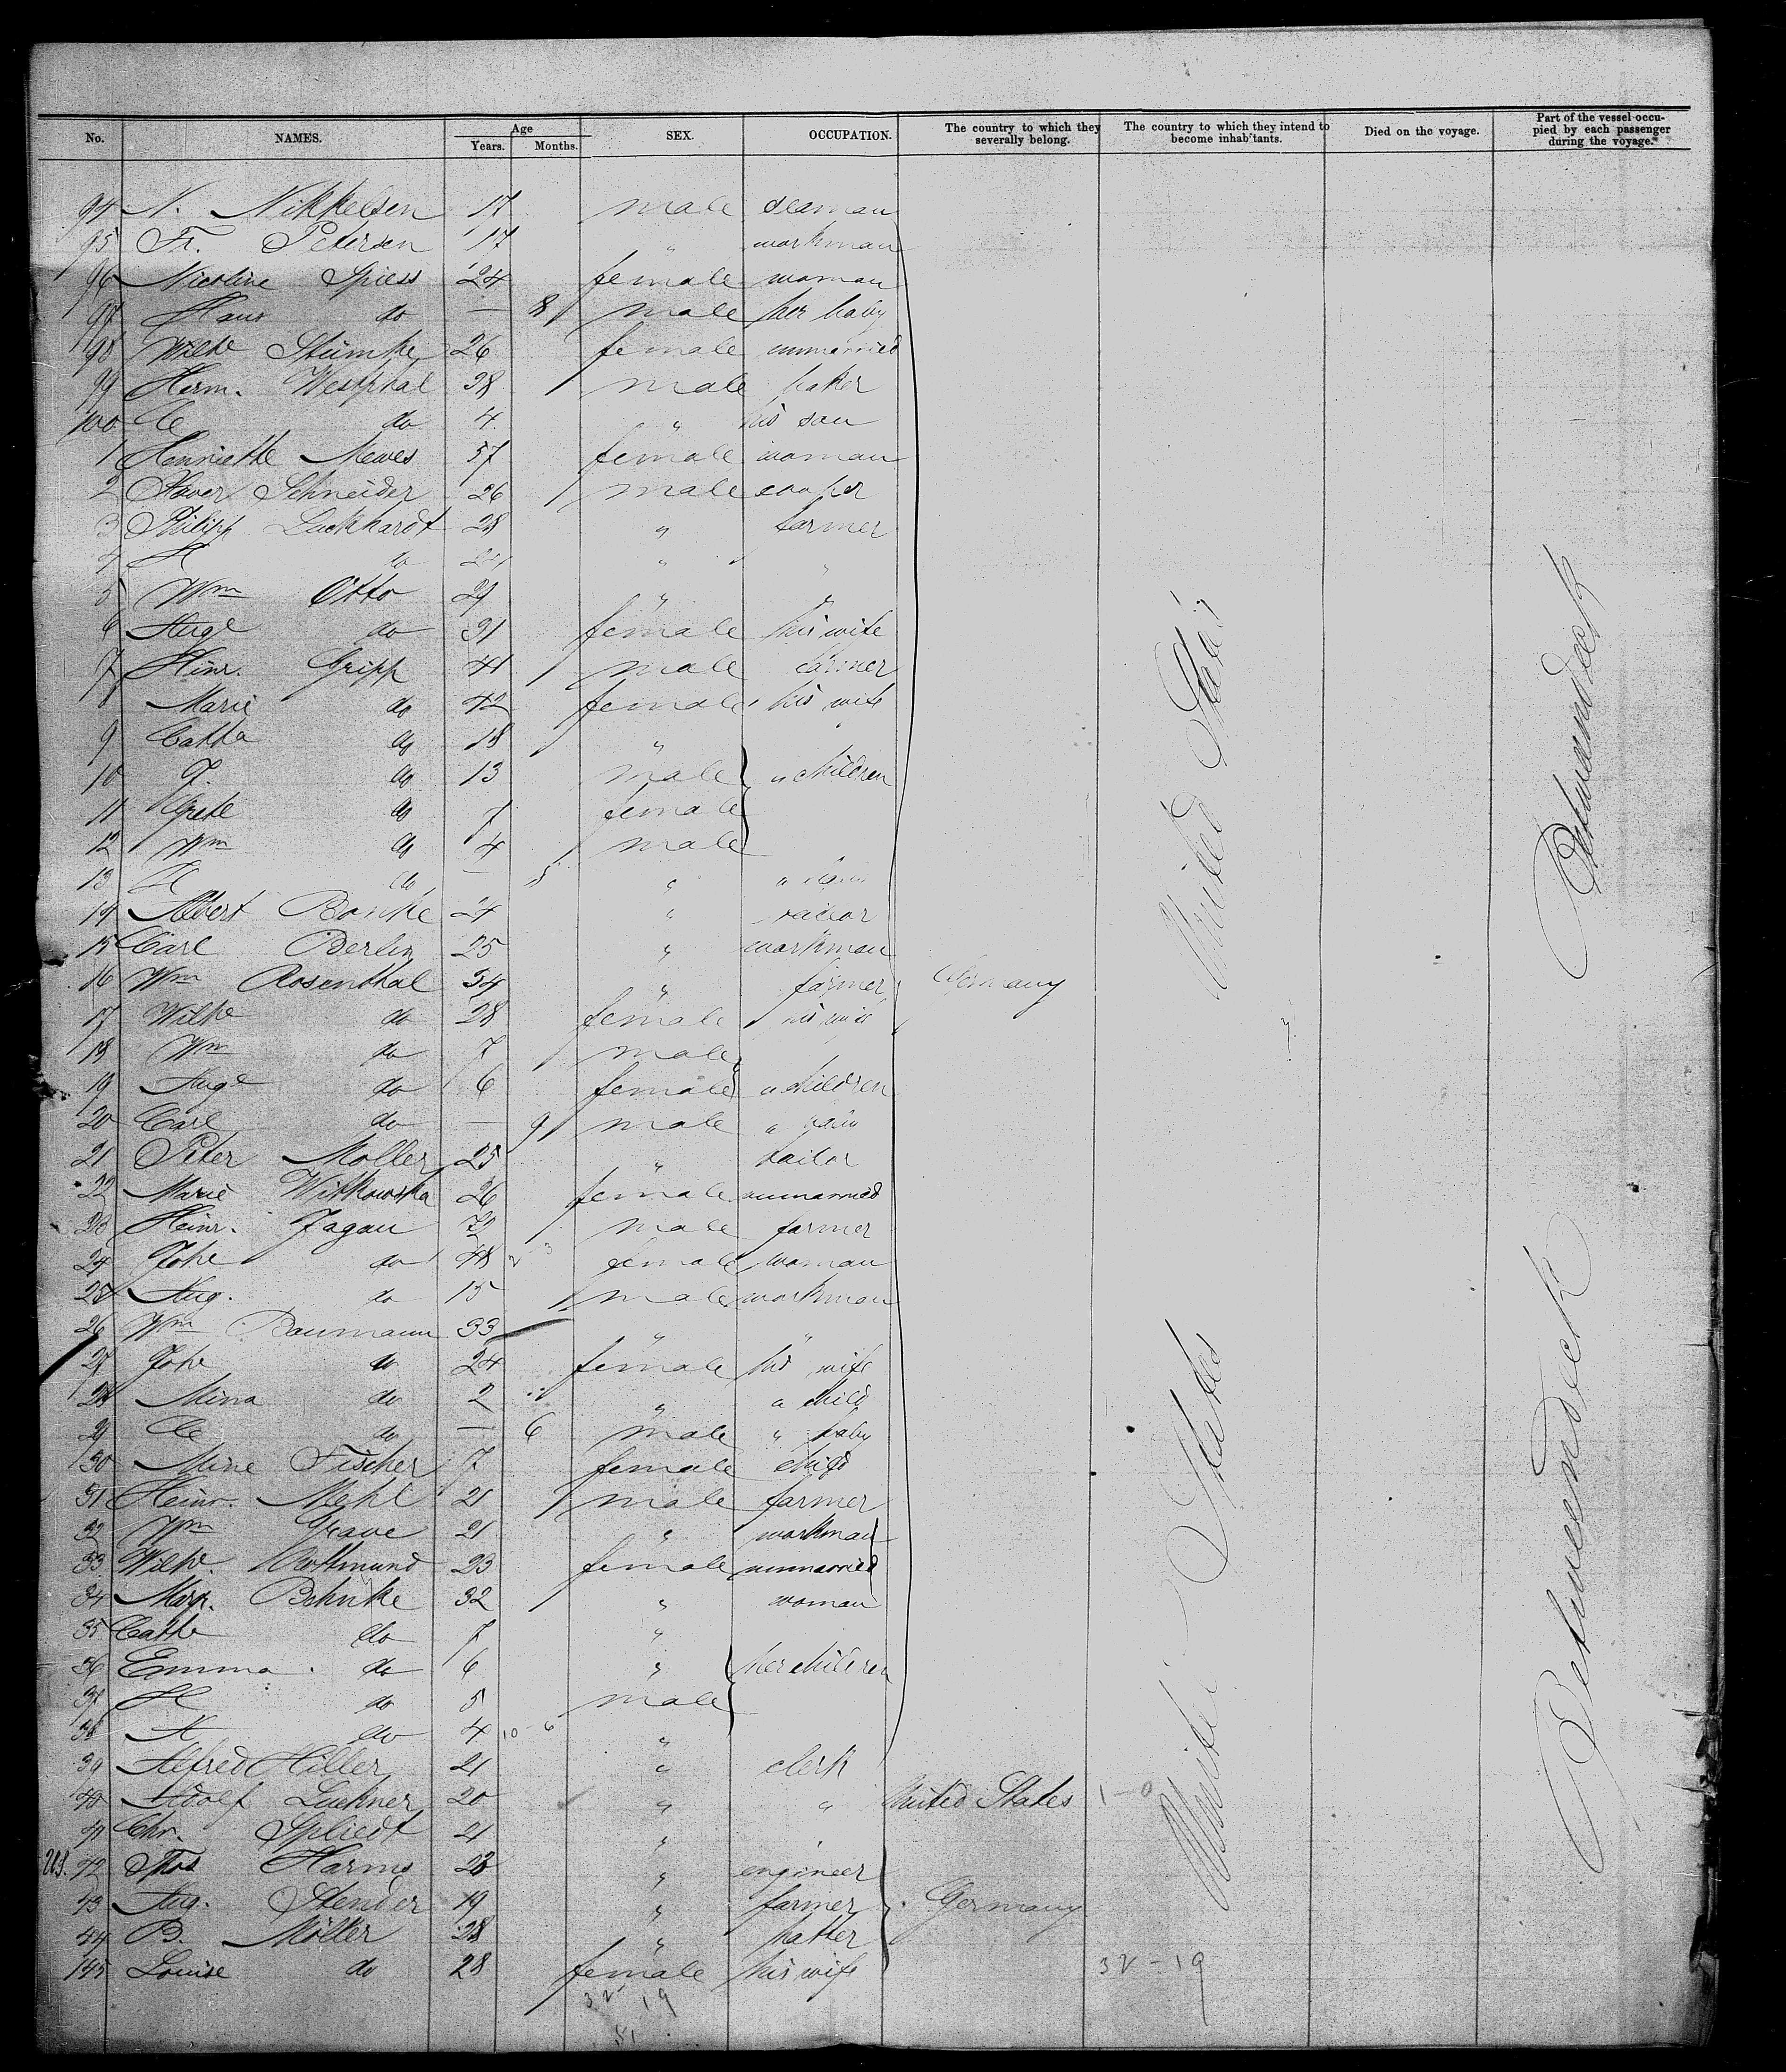 No. NAMES. Age Years. Months. SEX. OCCUPATION. The country to which they severally belong. The country to which they intend to become inhab'tants. Died on the voyage. Part of the vessel occupied by each passenger during the voyage.*
94 N. Nikkelsen 17 male seaman
95 Fr. Petersen 17 " workman
96 Nicoline Spiess 24 female woman
97 Hans do — 8 male her baby
98 Wilhe Stümke 26 female unmarried
99 Herm. Westphal 38 male baker
100 C do 4 " his son
1 Henriette Mewes 57 female woman
2 Xaver Schneider 26 male
3 Philipp Luckhardt 28 " farmer
4 H do " "
5 Wm Otto 29 " "
6 Auge do 31 female his wife
7 Hinr. Gripp 41 male farmer
8 Marie do 42 female his wife
9 Catha do 18 "
10 J. do 13 male " children
11 Grete do 7 female
12 Wm do 4 male
13 H do — " " baby
14 Albert Banke 24 "
15 Carl Berlin 25 " workman
16 Wm Rosenthal 34 " farmer Germany
17 Wilhe do 28 female his wife
18 Wm do 7 male
19 Auge do 6 female " children
20 Carl do — 9 male " baby
21 Peter Moller 25 " tailor
22 Marie Witkowska 26 female unmarried
23 Heinr. Jagau 72 male farmer
24 Johe do 48 female woman
25 Aug. do 15 male workman
26 Wm Baumann 33 " "
27 Johe do 24 female his wife
28 Mina do 2 " a child
29 C do — 6 male " baby
30 Mine Fischer 7 female child
31 Heinr. Mehl 21 male farmer
32 Wm Grave 21 " workman
33 Wilhe. 23 female unmarried
34 Marg. Behnke 32 " woman
35 Cathe do 7 "
36 Emma do 6 " her children
37 H do 5 male
38 A do 4 10 - 6 "
39 Alfred Hiller 21 " clerk
40 Adolf Luckner 20 " " United States 1-0
41 Chr. Spliedt 21 " "
42 Harms 23 " engineer
43 Aug. Stender 19 " farmer Germany
44 B. Möller 28 " hatter
145 Louise do 28 female his wife
32 - 19
32 19
51
United States
United States
Betweendeck
Betweendeck